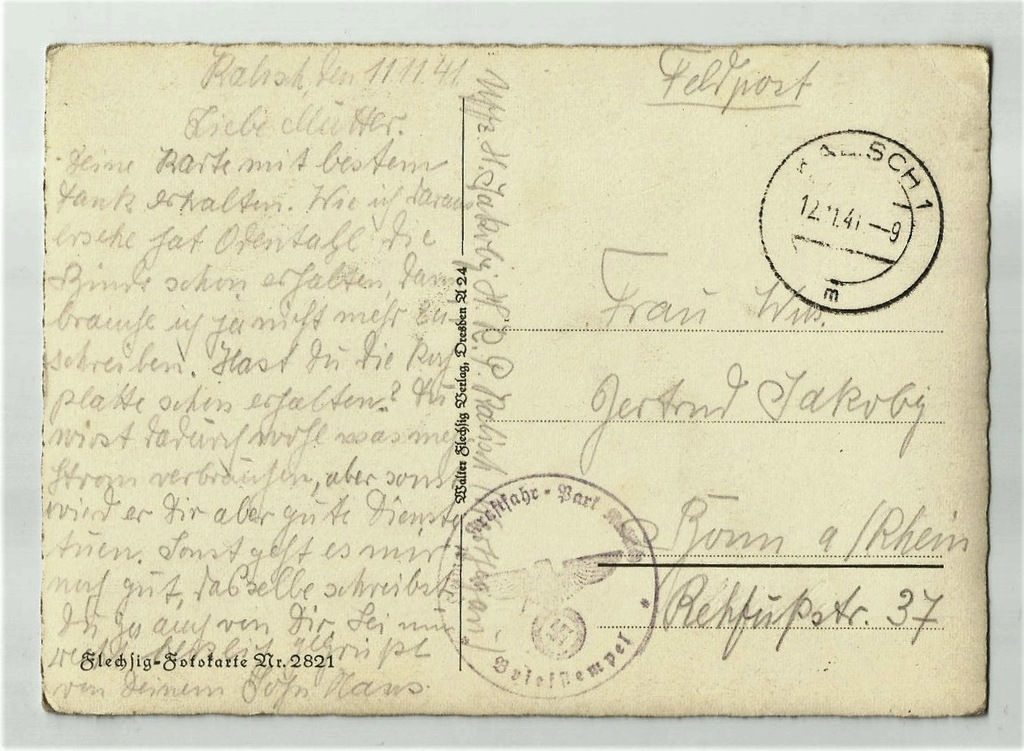 Kalisch, den 11.11.41
Liebe Mutter.
Deine Karte mit bestem
Dank erhalten. Wie ich daraus
ersehe hat Odentahl die
Binde schon erhalten, dann
brauche ich ja nicht mehr zu
schreiben. Hast du die Koch
platte schon erhalten? Du
wirst dadurch wohl was mehr
Strom verbrauchen, aber sonst
wird er Dir aber gute Dienste
tuen. Sonst geht es mir
noch gut, dasselbe schreibst
Du ja auch von Dir. Sei nun
recht herzlich gegrüßt
von Deinem Sohn Hans.
Flechsig-Fotokarte Nr. 2821
Uffz. H. Jakoby H.K.P. Kalisch
Walter Flechsig Verlag, Dresden A 24
Feldpost
KALISCH 1
12.11.41 –9
m
Frau Ww.
Gertrud Jakoby
Bonn a/Rhein
Rehfußstr. 37
Kraftfahr-Park
Briefstempel